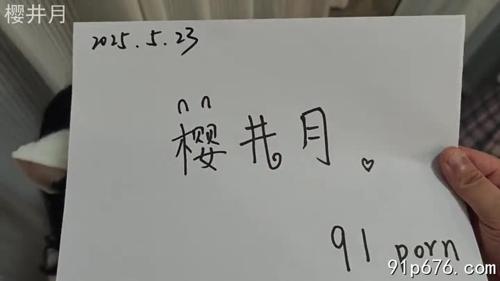 樱井月
2025.5.23
樱井月.
91 porn
91p676.com